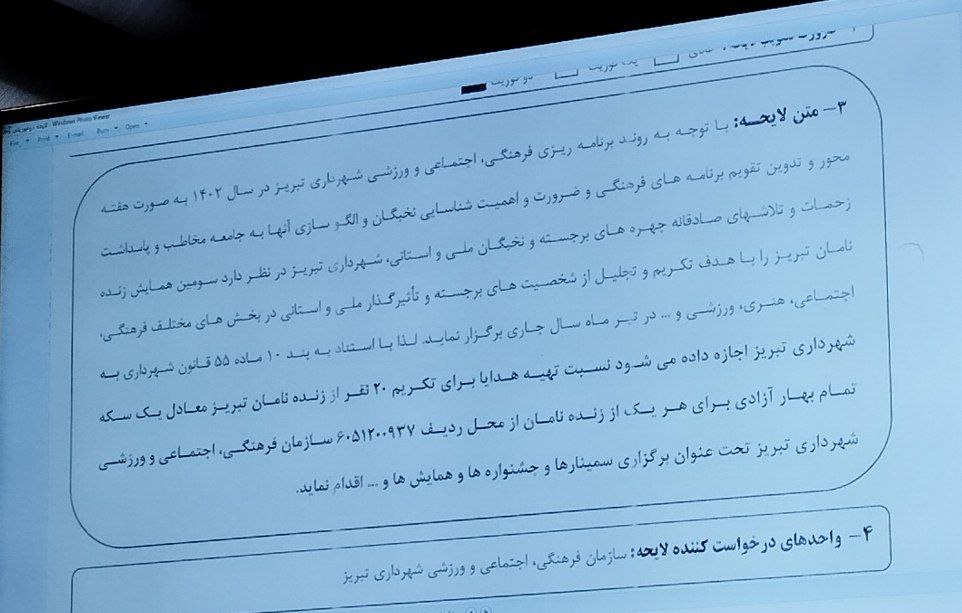 Windows Photo Viewer
File Print E-mail Burn Open
دو فوریت
۳- متن لایحه: با توجه به روند برنامه ریزی فرهنگی، اجتماعی و ورزشی شهرداری تبریز در سال ۱۴۰۲ به صورت هفته
محور و تدوین تقویم برنامه های فرهنگی و ضرورت و اهمیت شناسایی نخبگان و الگو سازی آنها به جامعه مخاطب و پاسداشت
زحمات و تلاشهای صادقانه چهره های برجسته و نخبگان ملی و استانی، شهرداری تبریز در نظر دارد سومین همایش زنده
نامان تبریز را با هدف تکریم و تجلیل از شخصیت های برجسته و تأثیرگذار ملی و استانی در بخش های مختلف فرهنگی،
اجتماعی، هنری، ورزشی و ... در تیر ماه سال جاری برگزار نماید. لذا با استناد به بند ۱۰ ماده ۵۵ قانون شهرداری به
شهرداری تبریز اجازه داده می شود نسبت تهیه هدایا برای تکریم ۲۰ نفر از زنده نامان تبریز معادل یک سکه
تمام بهار آزادی برای هر یک از زنده نامان از محل ردیف ۶۰۵۱۲۰۰۹۳۷ سازمان فرهنگی، اجتماعی و ورزشی
شهرداری تبریز تحت عنوان برگزاری سمینارها و جشنواره ها و همایش ها و ... اقدام نماید.
۴- واحدهای درخواست کننده لایحه: سازمان فرهنگی، اجتماعی و ورزشی شهرداری تبریز